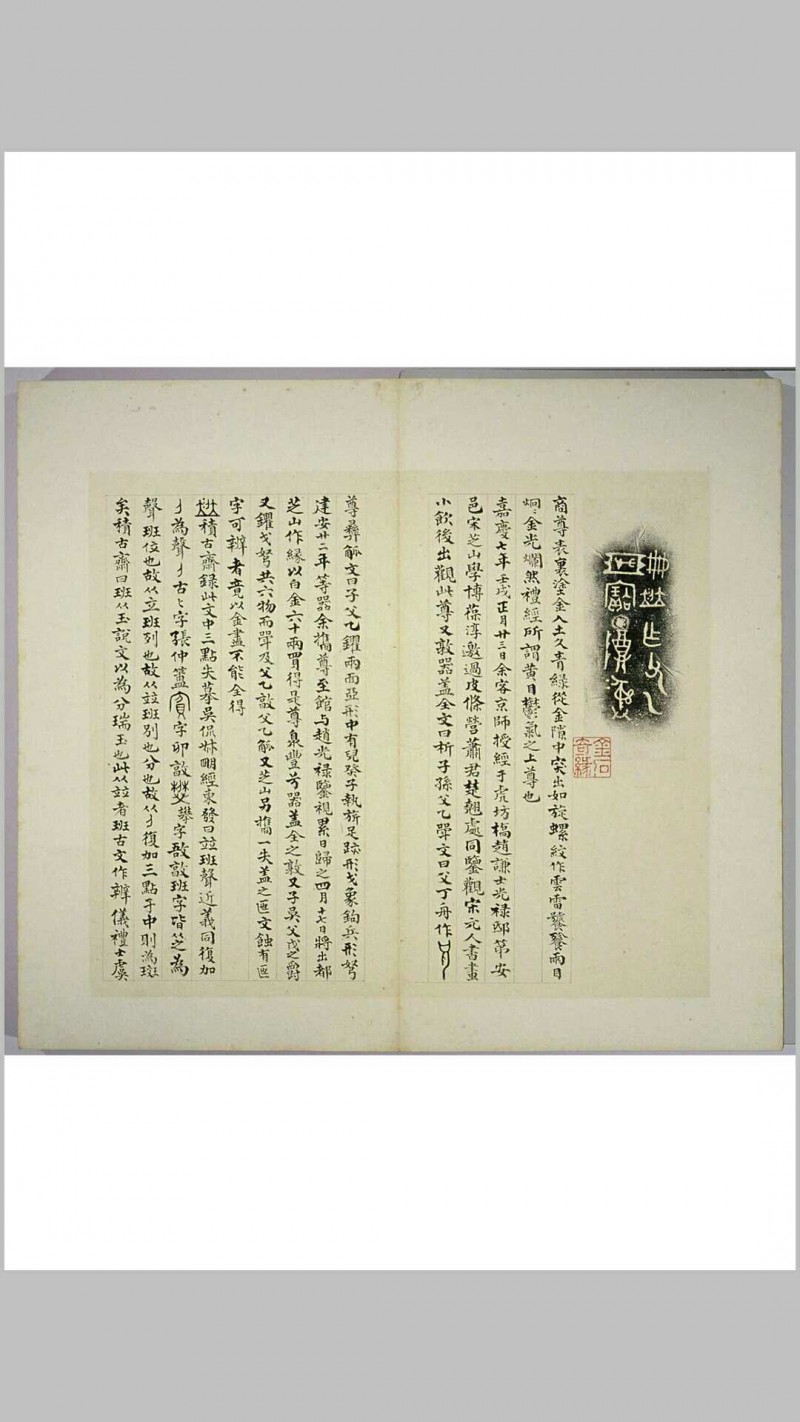 金石
奇緣
商尊表裏塗金入土久青綠從金隙中突出如旋螺紋作雲雷饕餮兩目
炯炯金光爛然禮經所謂黃目鬱氣之上尊也
嘉慶七年壬戌正月廿三日余客京師授經于虎坊橋趙謙士光祿邸第安
邑宋芝山學博葆淳邀過皮條營蕭君楚翹處同鑒觀宋元人書畫
小飲後出觀此尊又敦器蓋全文曰析子孫父乙斝文曰父丁舟作
尊彝觚文曰子父乙鑺兩面亞形中有兒癸子執旂足跡形戈象鉤兵形弩
建安廿二年等器余攜尊至館与趙光祿鑒視累日歸之四月十七日將出都
芝山作緣以白金六十兩買得是尊魚豐兮器蓋全之敦又子吳父戊之爵
又鑺戈弩共六物而斝及父乙敦父乙觚又芝山另攜一失蓋之匜文蝕有匜
字可辨者竟以金盡不能全得
積古齋錄此文中三點失摹吳侃叔明經東發曰竝班聲近義同復加
為聲古字張仲簠字卯敦攀字敔敦班字皆從為
聲班位也故从立班列也故从竝班別也分也故从復加三點于中則為斑
矣積古齋曰班从玉說文以為分瑞玉也此从竝者班古文作辨儀禮士虞